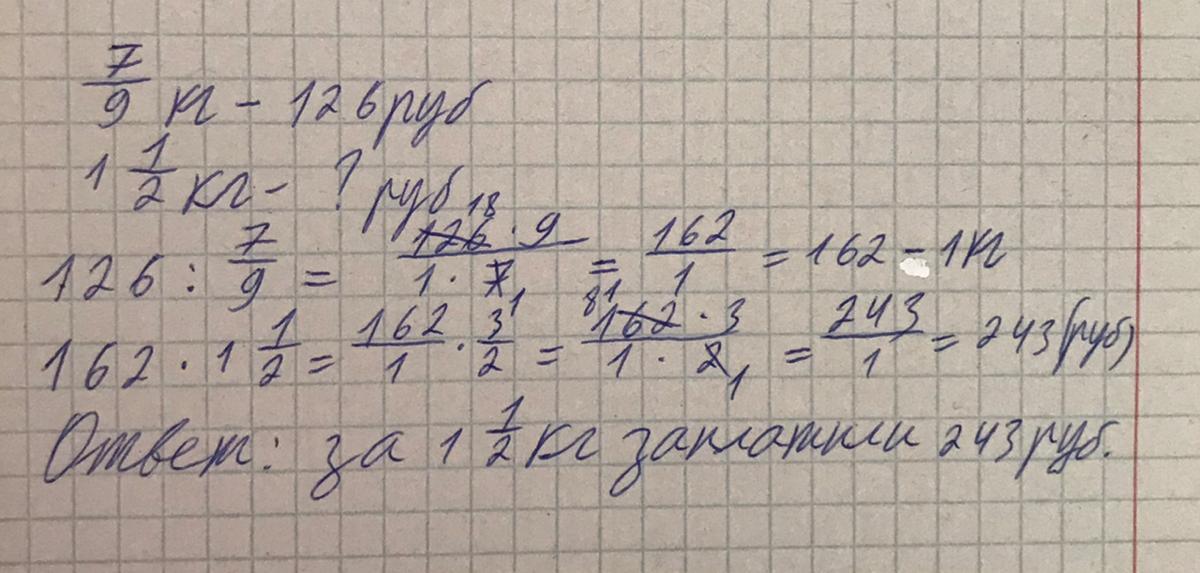 7/9 кг - 126 руб
1 1/2 кг - ? руб
126 : 7/9 = (126 18 · 9)/(1 · 7 1) = 162/1 = 162 - 1кг
162 · 1 1/2 = 162/1 · 3/2 = (162 81 · 3)/(1 · 2 1) = 243/1 = 243 (руб)
Ответ: за 1 1/2 кг заплатили 243 руб.